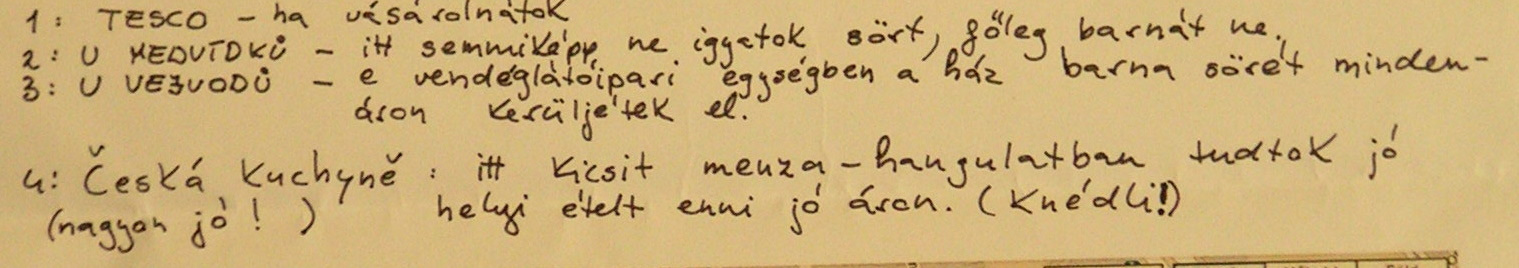 1: TESCO - ha vásárolnátok
2: U MEDVÍDKŮ - itt semmiképp ne igyatok sört, főleg barnát ne.
3: U VEJVODŮ - e vendéglátóipari egységben a ház barna sörét minden-
áron kerüljétek el.
4: Česká Kuchyně : itt kicsit menza-hangulatban tudtok jó
(nagyon jó! ) helyi ételt enni jó áron. (Knédli!)